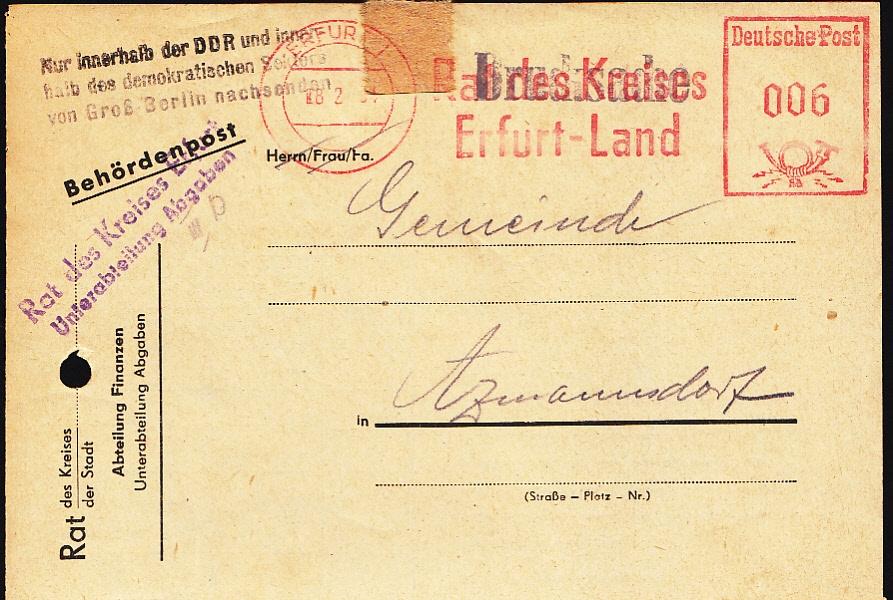 Nur innerhalb der DDR und inner-
halb des demokratischen Sektors
von Groß-Berlin nachsenden
Behördenpost
Rat des Kreises Erfurt
Unterabteilung Abgaben
ERFURT
Drucksache
Rat des Kreises
Erfurt-Land
Deutsche Post
006
Herrn/Frau/Fa.
Gemeinde
in Azmannsdorf
(Straße – Platz – Nr.)
Rat des Kreises
der Stadt
Abteilung Finanzen
Unterabteilung Abgaben